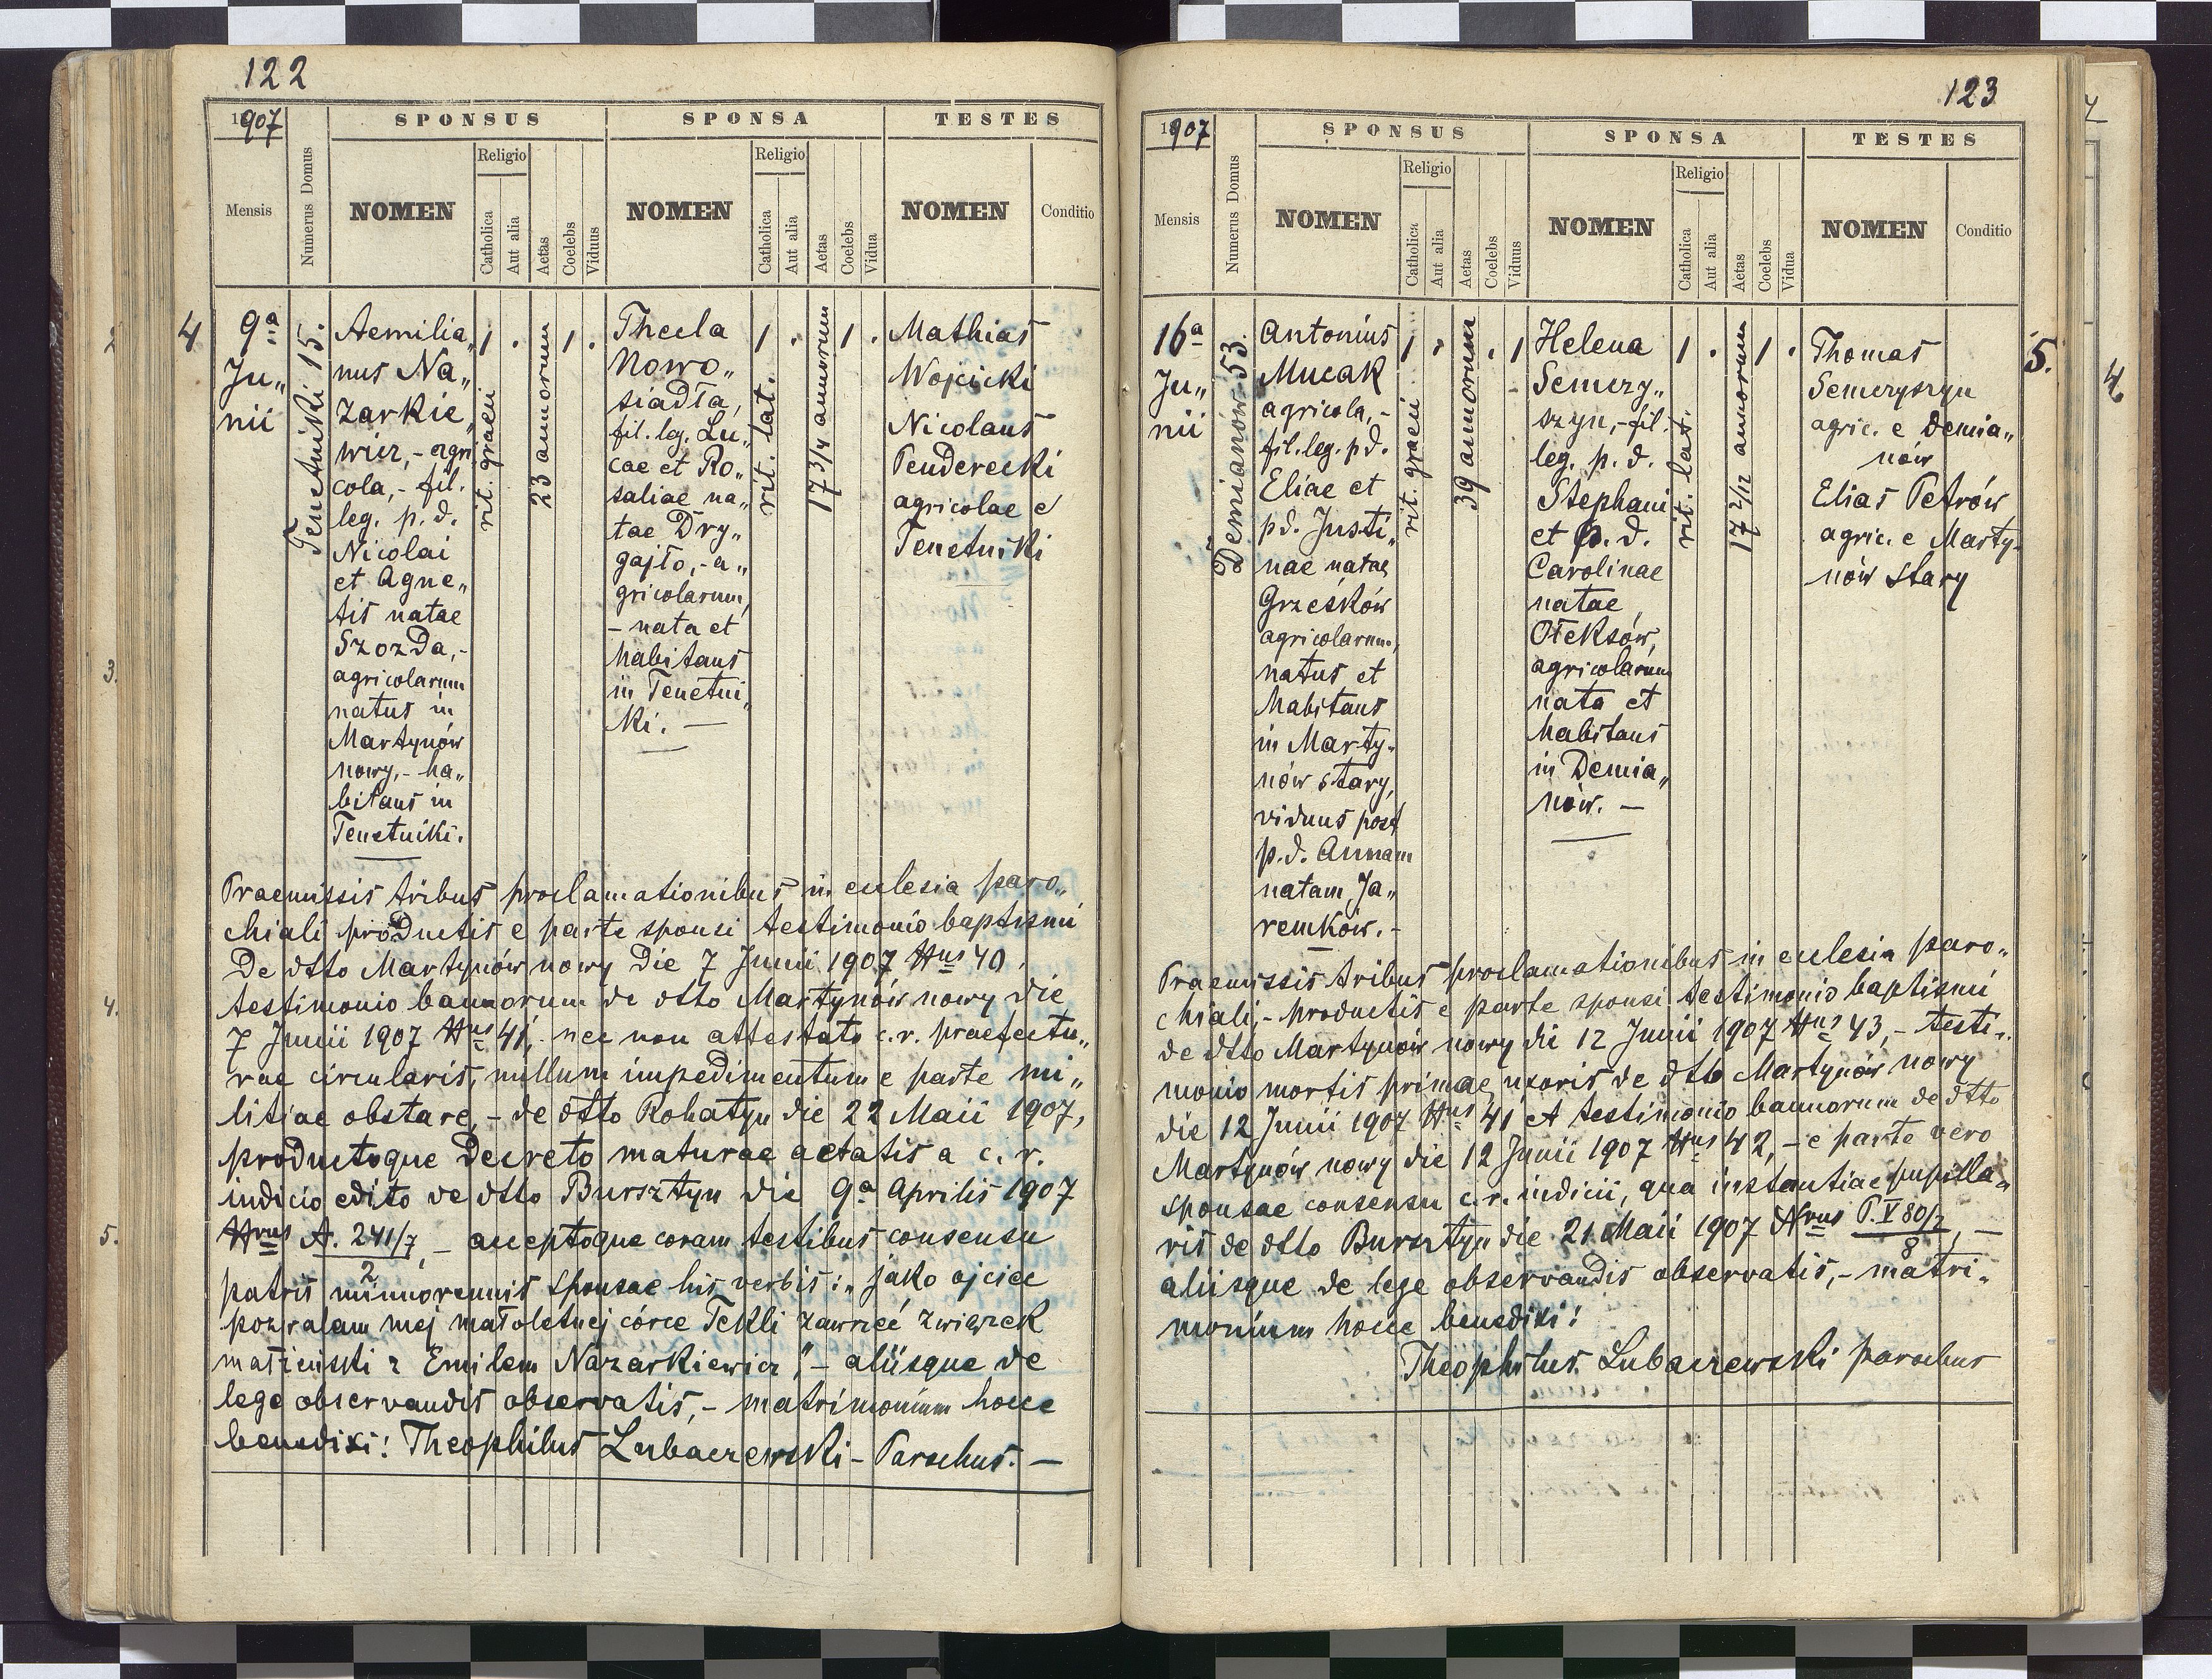 122
1907
SPONSUS
SPONSA
TESTES
Mensis
Numerus Domus
NOMEN
Religio
Catholica
Aut alia
Aetas
Coelebs
Viduus
NOMEN
Religio
Catholica
Aut alia
Aetas
Coelebs
Vidua
NOMEN
Conditio
4
9ª
Ju„
nii
Tenetniki 15.
Aemilia„
nus Na„
zarkie„
wicz,- agri
cola,- fil.
leg. p. d.
Nicolai
et Agne„
tis natae
Szozda,-
agricolarum
natus in
Martynów
nowy,- ha„
bitans in
Tenetniki.
1
.
rit. graeci
23 annorum
1
.
Thecla
Nowo„
siadła,
fil. leg. Lu„
cae et Ro„
saliae na„
tae Dry„
gajło,- a„
gricolarum,
- nata et
habitans
in Tenetni„
ki. —
1
.
rit. lat.
17 3/4 annorum
1
.
Mathias
Wojcicki
Nicolaus
Penderecki
agricolae e
Tenetniki
Praemissis tribus proclamationibus in ecclesia paro„
chiali productis e parte sponsi testimonio baptismi
de dtto Martynów nowy die 7 Junii 1907 Nus 40,
testimonio bannorum de dtto Martynów nowy die
7 Junii 1907 Nus 41, nec non attestato c. r. praefectu„
rae circularis, nullum impedimentum e parte mi„
litiae obstare,- de dtto Rohatyn die 22 Maii 1907,
productoque decreto maturae aetatis a c. r.
iudicio edito de dtto Bursztyn die 9ª Aprilis 1907
Nrus A. 241/7
2
, — acceptoque coram testibus consensu
patris minnorennis sponsae his verbis: „jako ojciec
pozwalam mej małoletniej córce Tekli zawrzeć związek
małżeński z Emilem Nazarkiewicz",- aliisque de
lege observandis observatis,- matrimonium hocce
benedixi! Theophilus Lubaczewski - Parochus. —
123
1907
SPONSUS
SPONSA
TESTES
Mensis
Numerus Domus
NOMEN
Religio
Catholica
Aut alia
Aetas
Coelebs
Viduus
NOMEN
Religio
Catholica
Aut alia
Aetas
Coelebs
Vidua
NOMEN
Conditio
16ª
Ju„
nii
Demianów 53.
Antonius
Mucak
agricola,-
fil. leg. p d.
Eliae et
pd. Justi„
nae natae
Grześków
agricolarum,
natus et
habitans
in Marty-
nów stary,
viduus post
p. d. Annam
natam Ja„
remków.-
1
.
rit. graeci
39 annorum
.
1
Helena
Semery„
szyn,- fil.
leg. p. d.
Stephani
et p. d.
Carolinae
natae
Ołeksów,
agricolarum
nata et
habitans
in Demia„
nów. —
1
.
rit. lat.
17 2/12 annorum
1
.
Thomas
Semeryszyn
agric. e Demia„
nów
Elias Petrów
agric. e Marty-
nów stary
5.
Praemissis tribus proclamationibus in ecclesia paro„
chiali,- productis e parte sponsi testimonio baptismi
de dtto Martynów nowy die 12 Junii 1907 Nus 43,- testi„
monio mortis primae uxoris de dtto Martynów nowy
die 12 Junii 1907 Nus 41 et testimonio bannorum de dtto
Martynów nowy die 12 Junii 1907 Nus 42,- e parte vero
sponsae consensu c. r. iudicii, qua instantiae pupilla„
ris de dtto Bursztyn die 21 Maii 1907 Nrus P. V 80/7
8
, —
aliisque de lege observandis observatis,- matri„
monium hocce benedixi!
Theophilus Lubaczewski parochus
3.
4.
5.
4